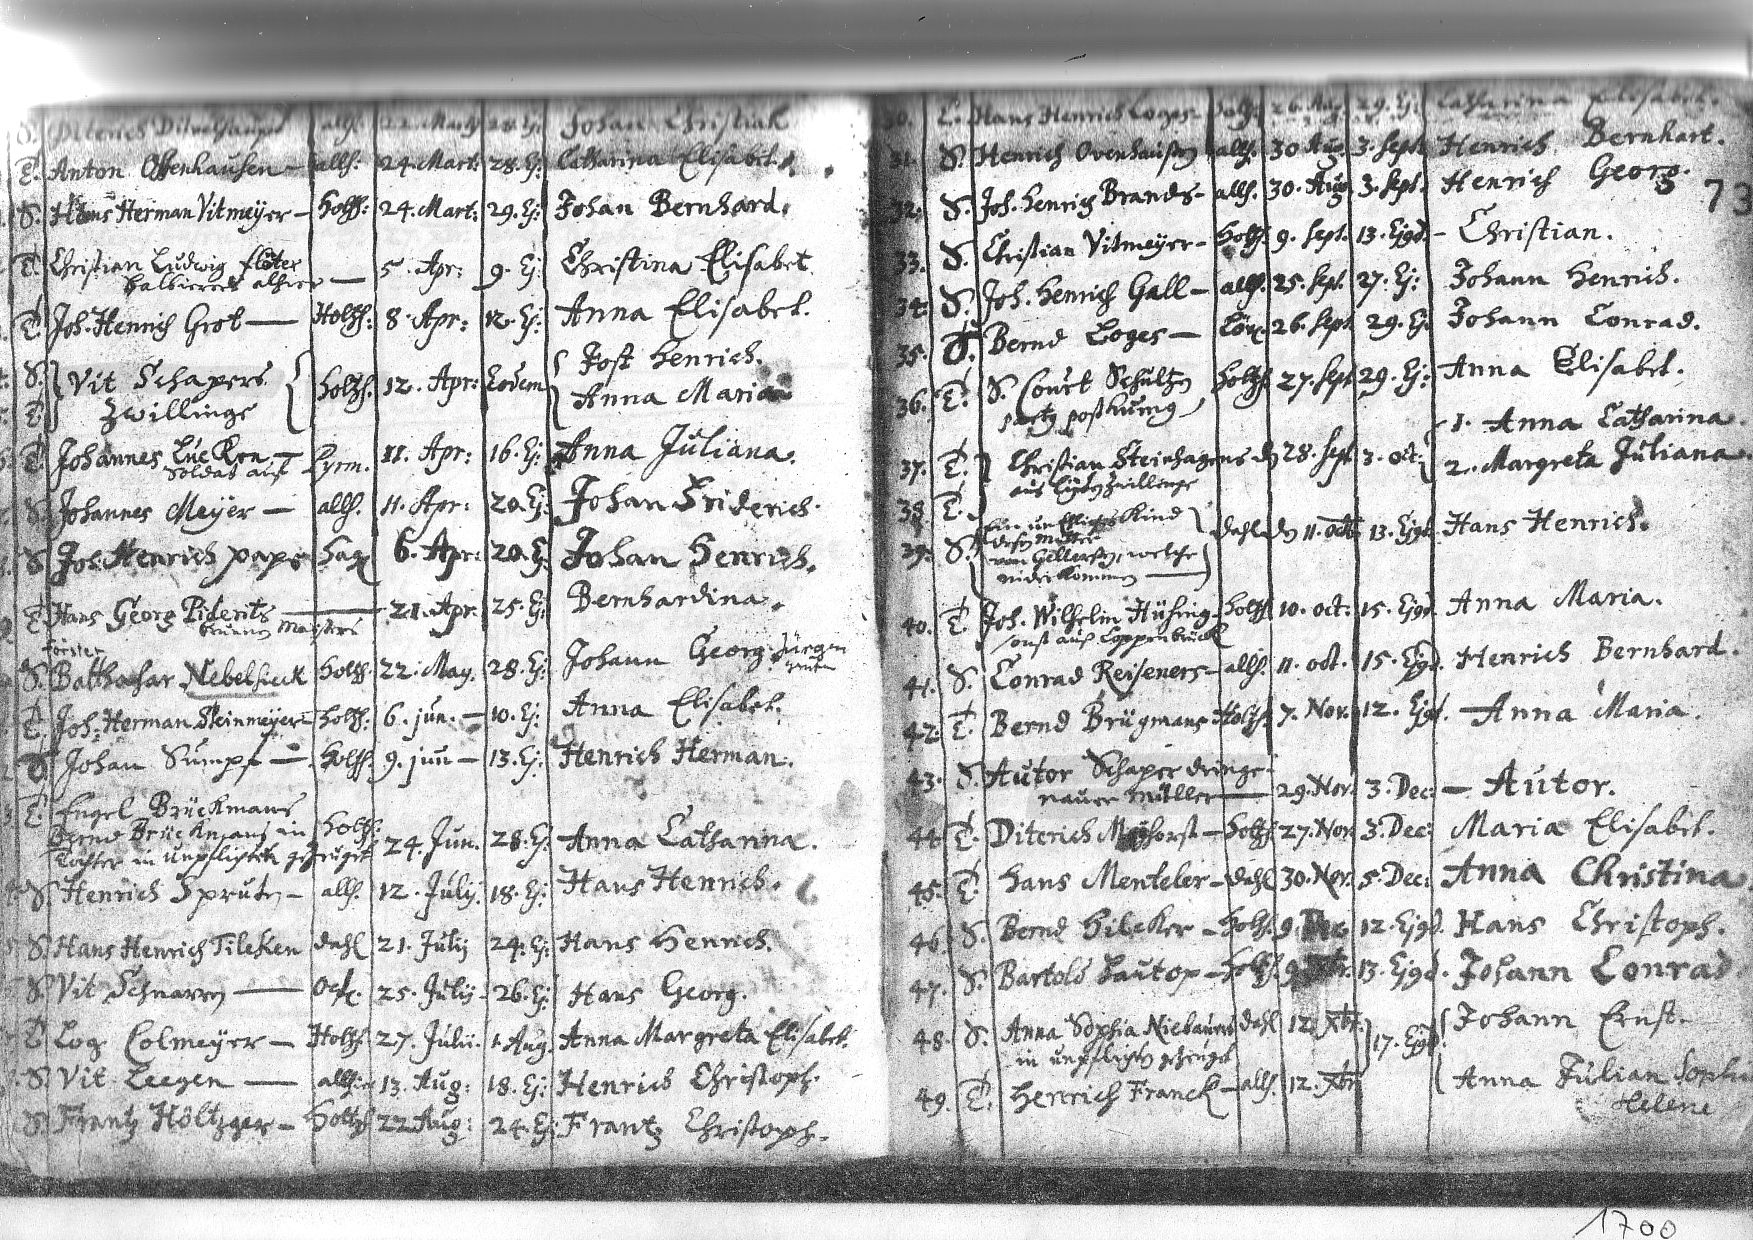 S. Diterich allh. 22. Mart. 28. Ej: Johan Christian
T. Anton Offenhausen – allh: 24. Mart: 28. Ej: Catharina Elisabet.
S. Hans Herman Vitmeyer – Holtzh: 24. Mart: 29. Ej: Johan Bernhard.
T. Christian Ludwig Flöter
Balbierer alhier — 5. Apr: 9. Ej: Christina Elisabet
T. Joh. Henrich Grot — Holtzh: 8. Apr: 12. Ej: Anna Elisabet.
S. Vit Schapers Holtzh. 12. Apr: Eodem Jost Henrich.
T. Zwillinge Anna Maria
T. Johannes Lücken Pyrm. 11. Apr: 16. Ej: Anna Juliana.
Soldat auf
S. Johannes Meyer — allh. 11. Apr: 20. Ej: Johan Friderich.
S. Joh. Henrich Pape Hag 6. Apr: 20. Ej: Johan Henrich.
T. Hans Georg Piderits — 21. Apr. 25. Ej: Bernhardina.
brunnen Meisters
förster
S. Balthasar Nebelsieck Holtzh. 22. May. 28. Ej: Johann Georg Jürgen
T. Joh. Herman Steinmeyer – Holtzh. 6. jun. – 10. Ej: Anna Elisabet.
S. Johan Sumpf – Holtzh. 9. jun – 13. Ej: Henrich Herman.
T. Engel Brückmans
Bernd Brückmans in Holtzh:
Tochter in unpflichten gezeuget 24. Jun. 28. Ej: Anna Catharina.
S. Henrich Spruten – allh. 12. July. 18. Ej: Hans Henrich.
S. Hans Henrich Tileken dahl 21. July 24. Ej: Hans Henrich.
S. Vit Schnarren — 25. July. 26. Ej: Hans Georg.
T. Log Colmeyer – Holtzh. 27. Julii. 1. Aug. Anna Margreta Elisabet.
S. Vit Zeegen — allh: 13. Aug: 18. Ej: Henrich Christoph.
S. Frantz Höltzger – Holtzh 22 Aug: 24. Ej: Frantz Christoph.
30. T. Hans Henrich Loges – 26. Aug. 29. Ej: Catharina Elisabet.
31. S. Henrich Ovenhausen allh. 30 Aug. 3. Sept. Henrich Bernhart.
73
32. S. Joh. Henrich Brandes – allh. 30. Aug. 3. Sept. Henrich Georg.
33. S. Christian Vitmeyer – Holtzh. 9. Sept. 13. Ejgd. – Christian.
34. S. Joh. Henrich Gall – allh. 25. Sept. 27. Ej: Johann Henrich.
35. S. Bernd Loges — 26. Sept. 29. Ej: Johann Conrad.
36. T. S. Court Schultzen Holtzh. 27. Sept 29. Ej: Anna Elisabet.
partg posthumg
37. T. Christian Steinhagens d 28. Sept. 3. oct: 1. Anna Catharina.
38. T. aus Zwillinge 2. Margreta Juliana.
39. S. Ein unEhliches Kind dahl den 11. octb. 13. Ejgd. Hans Henrich.
desen Mutter
von welche
niderkommen —
40. T. Joh. Wilhelm Hühnig – Holtzh 10. oct: 15. Ejgd. Anna Maria.
sonst aus Coppenbrück
41. S. Conrad Reiseners – allh. 11. oct. 15. Ejgd. Henrich Bernhard.
42. T. Bernd Brügmans Holtzh. 7. Nov. 12. Ejgd. – Anna Maria.
43. S. Autor Schaper dringe-
nauer Müller — 29. Nov. 3. Dec: – Autor.
44. T. Diterich – Holtzh 27. Nov. 3. Dec: Maria Elisabet.
45. T. Hans Menteler – dahl 30. Nov. 5. Dec: Anna Christina.
46. S. Bernd Hileker – Holtzh. 9. Dec. 12. Ejgd. Hans Christoph.
47. S. Bartold Lautop – Holtzh. 9. Xbr. 13. Ejgd. Johann Conrad
48. S. Anna Sophia Niebauers dahl 12. Xbr. 17. Ejgd. Johann Ernst.
in unpflichten gezeuget
49. T. Henrich Franck – allh. 12. Xbr. Anna Julian Sophia
Helene
1700